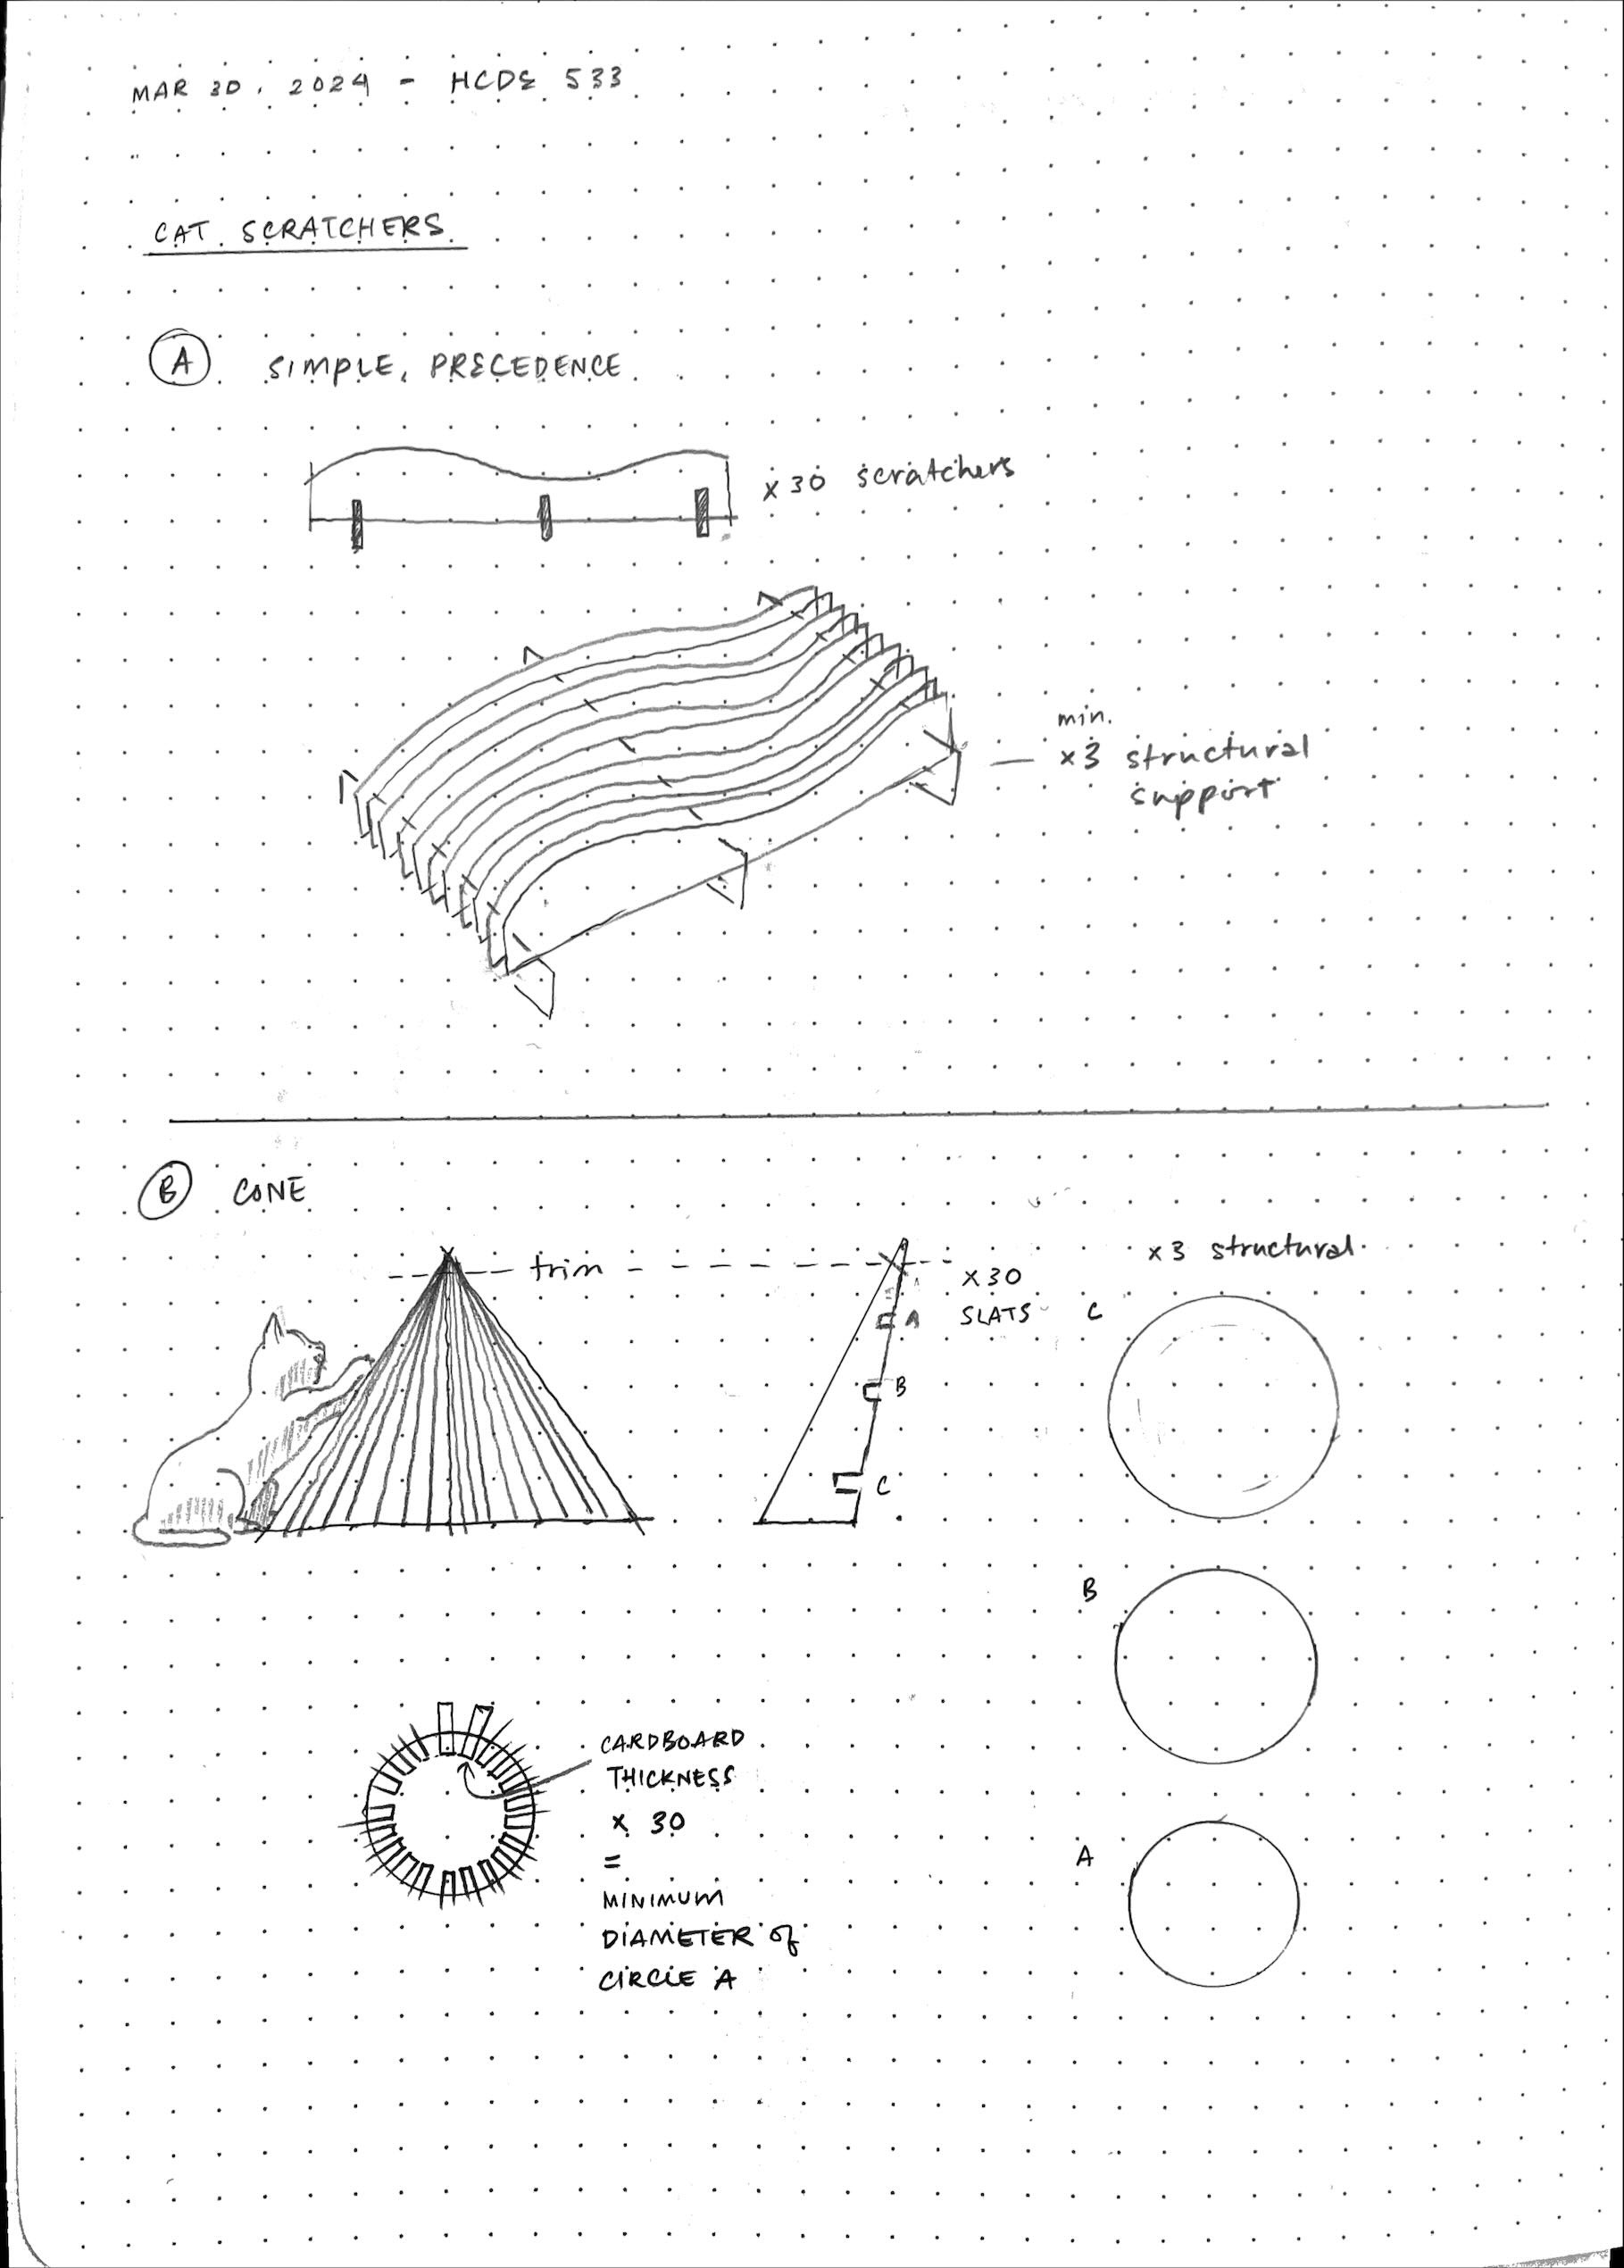 MAR 30. 2024 - HCDE 533
CAT SCRATCHERS
A SIMPLE, PRECEDENCE
x 30 scratchers
min.
x3 structural
support
B CONE
trim
x30
SLATS
A
B
C
x3 structural
C
B
A
CARDBOARD
THICKNESS
x 30
=
MINIMUM
DIAMETER of
CIRCLE A